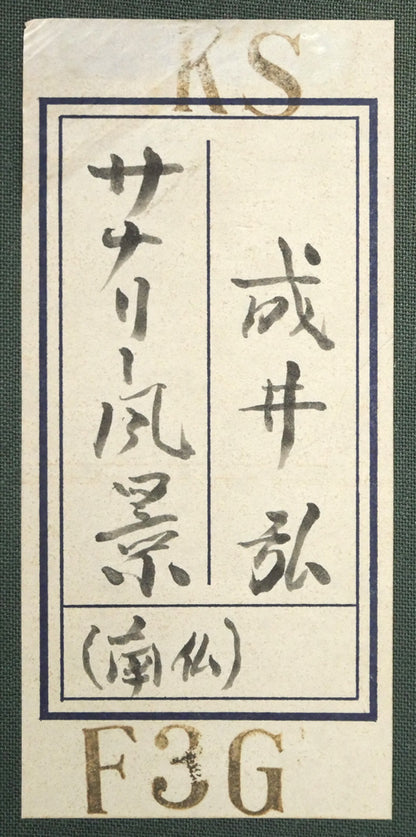 KS
成井弘
サナリー風景
(南仏)
F3G